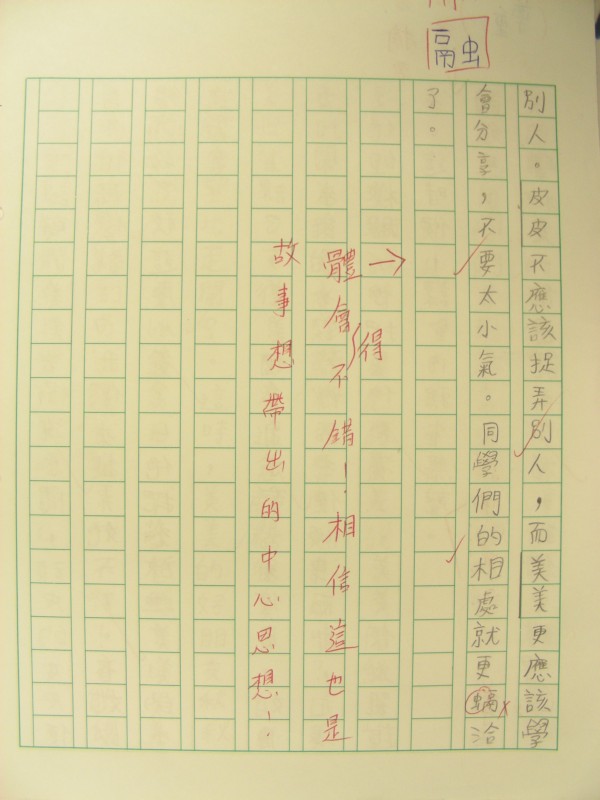 融
別人。皮皮不應該捉弄別人，而美美更應該學
會分享，不要太小氣。同學們的相處就更融洽
了。
→
體會得不錯！相信這也是
故事想帶出的中心思想！